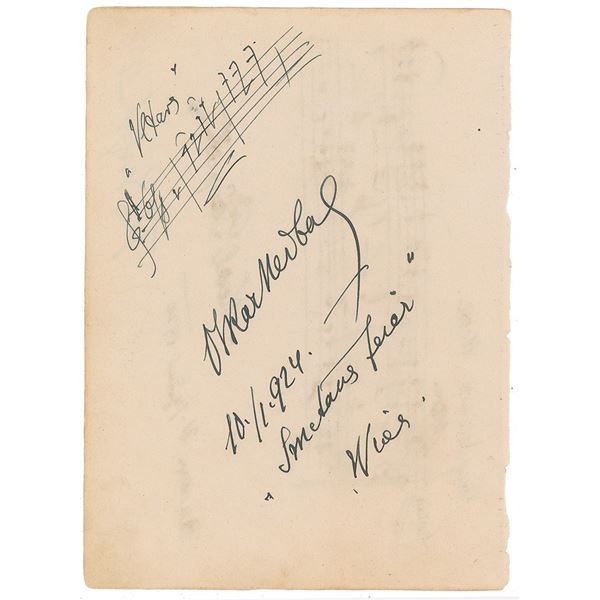 "Vltava"
Oskar Nedbal
10./1.1924.
"Smetana Feier"
Wien.